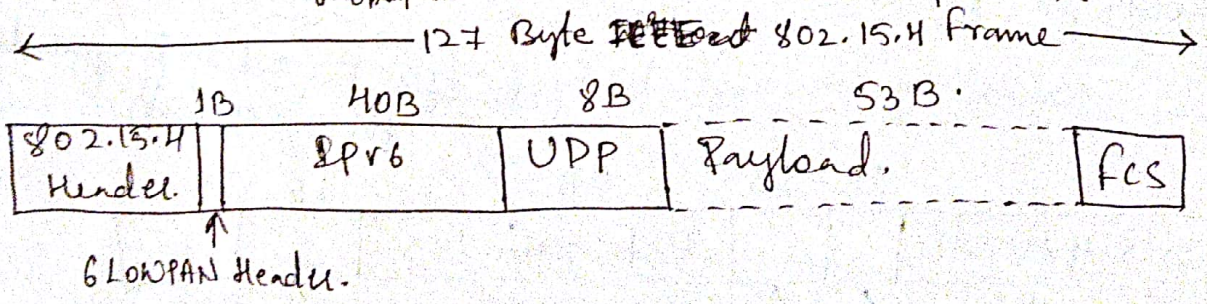 127 Byte 802.15.4 Frame
1B 40B 8B 53B.
802.15.4 Header. IPv6 UDP Payload. FCS
6LOWPAN Header.